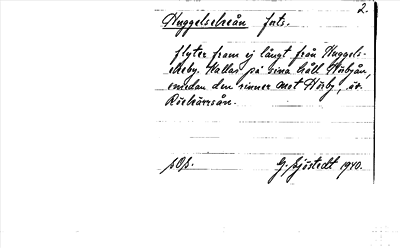 2.
Huggelseån forts.
flyter fram ej långt från Huggels-
ekeby. Kallas på sina håll Hörbyån,
emedan den rinner mot Hörby, äv.
Rörkärrsån.
G. Sjöstedt 1940.